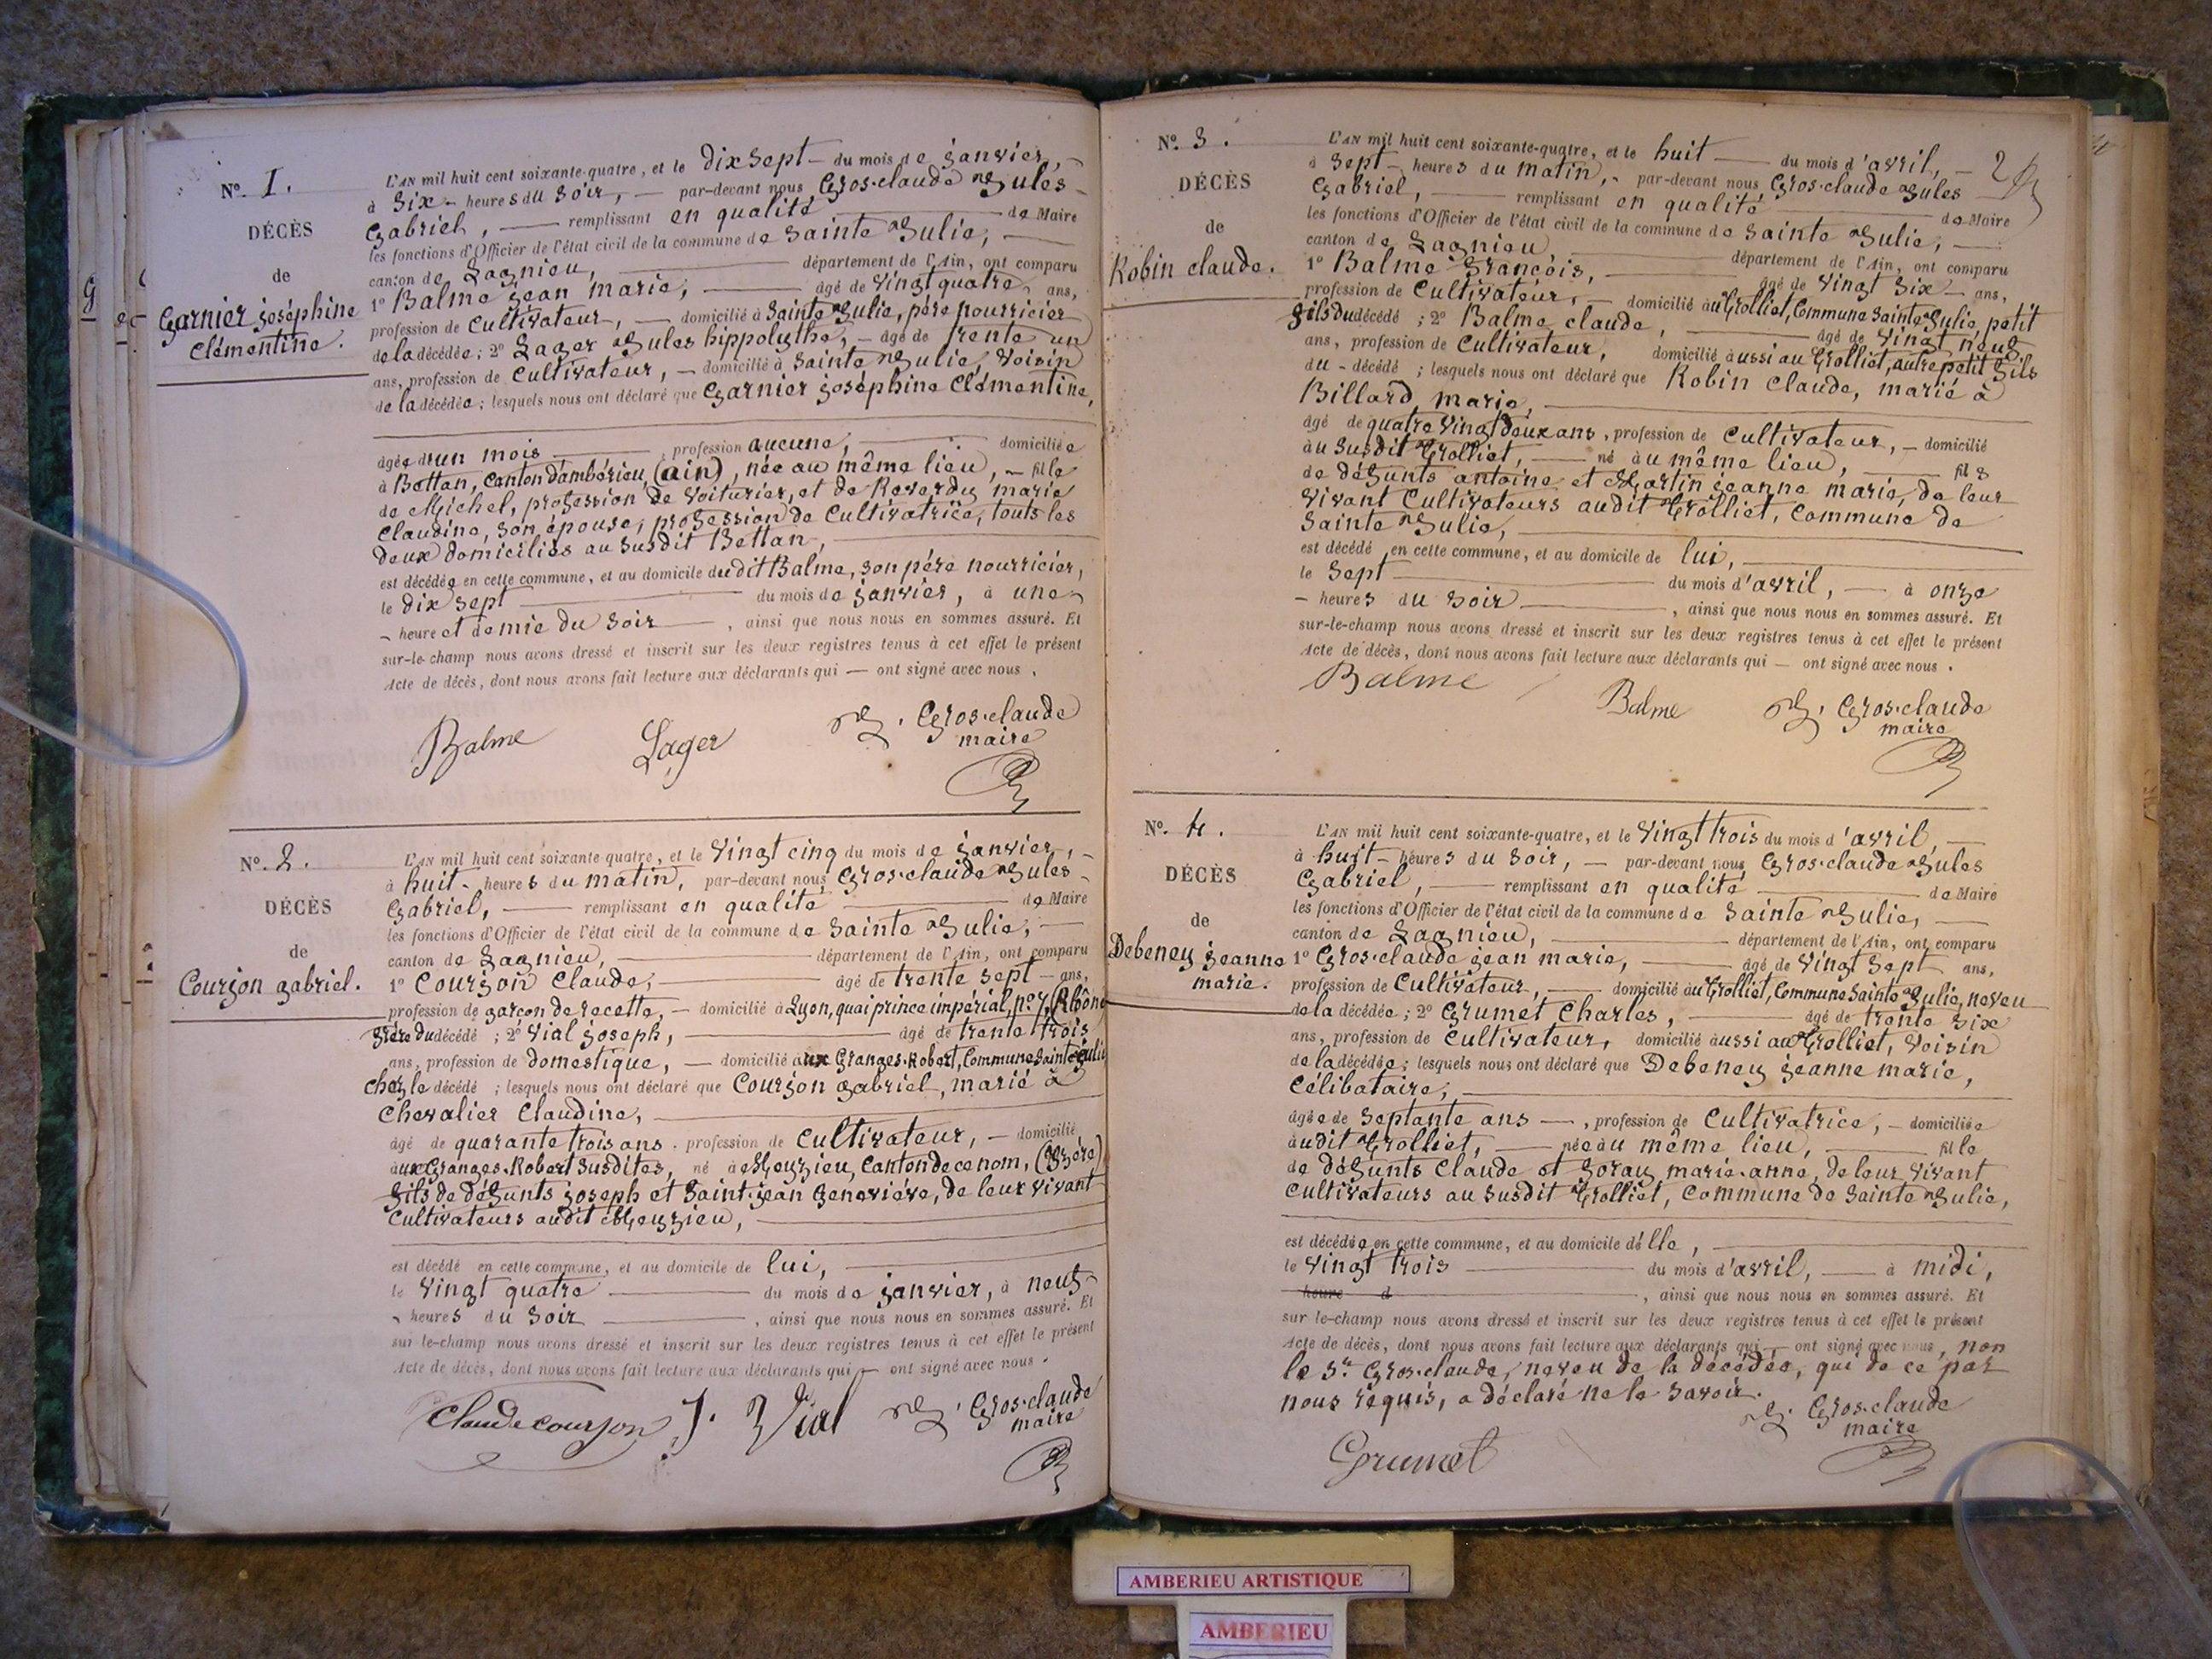 N.º 1.
DÉCÈS
de
Garnier joséphine
Clémentine.
L'AN mil huit cent soixante-quatre, et le dix sept — du mois de janvier, —
à six — heures du soir, — par-devant nous Gros-claude Jules —
Gabriel, — remplissant en qualité — de Maire
les fonctions d'Officier de l'état civil de la commune de Sainte Julie, —
canton de Lagnieu, — département de l'Ain, ont comparu
1º Balme jean marie, — âgé de Vingt quatre ans,
profession de Cultivateur, — domicilié à Sainte Julie, père nourricier
de la décédée; 2º Lager Jules hippolythe, — âgé de trente un
ans, profession de Cultivateur, — domicilié à Sainte Julie, Voisin
de la décédée; lesquels nous ont déclaré que Garnier joséphine Clémentine,
âgée d'un mois — , profession aucune, — domiciliée
à Bettan, Canton d'ambérieu, (ain), née au même lieu, — fille
de Michel, profession de Voiturier, et de Reverdy marie
Claudine, son épouse, profession de Cultivatrice, touts les
deux domiciliés au susdit Bettan, —
est décédée en cette commune, et au domicile dudit Balme, son père nourricier,
le dix sept — du mois de janvier, à une
- heure et demie du soir — , ainsi que nous nous en sommes assuré. Et
sur-le-champ nous avons dressé et inscrit sur les deux registres tenus à cet effet le présent
Acte de décès, dont nous avons fait lecture aux déclarants qui — ont signé avec nous.
Balme Lager J. G. Gros-claude
maire
N.º 2.
DÉCÈS
de
Courjon gabriel.
L'AN mil huit cent soixante quatre, et le Vingt cinq du mois de janvier, —
à huit - heures du matin, par-devant nous Gros-claude Jules —
Gabriel, — remplissant en qualité — de Maire
les fonctions d'Officier de l'état civil de la commune de Sainte Julie, —
canton de Lagnieu, — département de l'Ain, ont comparu
1º Courjon Claude, — âgé de trente sept — ans,
profession de garçon de recette, — domicilié à Lyon, quai prince impérial, nº 7, (Rhône
frère du décédé; 2º Vial joseph, — âgé de trente trois
ans, profession de domestique, — domicilié aux Granges-Robert, Commune Sainte Julie
chez le décédé; lesquels nous ont déclaré que Courjon gabriel, marié à
Chevalier Claudine, —
âgé de quarante trois ans. profession de Cultivateur, — domicilié
aux Granges-Robert susdites, né à Meyzieu, Canton de ce nom, (Isère)
fils de défunts joseph et Saint-jean Geneviève, de leur vivant
Cultivateurs audit Meyzieu, —
est décédé en cette commune, et au domicile de lui, —
le Vingt quatre — du mois de janvier, à neuf
- heures du soir — , ainsi que nous nous en sommes assuré. Et
sur le-champ nous avons dressé et inscrit sur les deux registres tenus à cet effet le présent
Acte de décès, dont nous avons fait lecture aux déclarants qui — ont signé avec nous.
Claude courjon J. Vial J. G. Gros-claude
maire
N.º 3.
DÉCÈS
de
Robin claude.
L'AN mil huit cent soixante-quatre, et le huit — du mois d'avril, —
2
à sept - heures du matin, - par-devant nous Gros-claude Jules
Gabriel, — remplissant en qualité — de Maire
les fonctions d'Officier de l'état civil de la commune de Sainte Julie, —
canton de Lagnieu, — département de l'Ain, ont comparu
1º Balme François, — âgé de Vingt six — ans,
profession de Cultivateur, — domicilié au Trolliet, Commune Sainte Julie, petit
fils du décédé; 2º Balme claude, — âgé de Vingt neuf
ans, profession de Cultivateur, domicilié aussi au Trolliet, autre petit fils
du - décédé; lesquels nous ont déclaré que Robin claude, marié à
Billard marie, —
âgé de quatre Vingt deux ans, profession de Cultivateur, — domicilié
au susdit Trolliet, — né au même lieu, — fils
de défunts antoine et Martin jeanne marie, de leur
Vivant Cultivateurs audit Trolliet, Commune de
Sainte Julie, —
est décédé en cette commune, et au domicile de lui, —
le sept — du mois d'avril, — à onze
- heures du soir — , ainsi que nous nous en sommes assuré. Et
sur-le-champ nous avons dressé et inscrit sur les deux registres tenus à cet effet le présent
Acte de décès, dont nous avons fait lecture aux déclarants qui — ont signé avec nous.
Balme Balme J. G. Gros-claude
maire
N.º 4.
DÉCÈS
de
Debeney jeanne
marie.
L'AN mil huit cent soixante-quatre, et le Vingt trois du mois d'avril, —
à huit - heures du soir, — par-devant nous Gros-claude Jules
Gabriel, — remplissant en qualité — de Maire
les fonctions d'Officier de l'état civil de la commune de Sainte Julie, —
canton de Lagnieu, — département de l'Ain, ont comparu
1º Gros-claude jean marie, — âgé de Vingt sept ans,
profession de Cultivateur, — domicilié au Trolliet, Commune Sainte Julie, neveu
de la décédée; 2º Grumet Charles, — âgé de trente six
ans, profession de Cultivateur, domicilié aussi au Trolliet, Voisin
de la décédée; lesquels nous ont déclaré que Debeney jeanne marie,
Célibataire, —
âgée de septante ans — , profession de Cultivatrice, — domiciliée
audit Trolliet, — née au même lieu, — fille
de défunts Claude et Foray marie-anne, de leur vivant
Cultivateurs au susdit Trolliet, Commune de Sainte Julie,
est décédée en cette commune, et au domicile d'elle, —
le Vingt trois — du mois d'avril, — à midi,
heure d — , ainsi que nous nous en sommes assuré. Et
sur-le-champ nous avons dressé et inscrit sur les deux registres tenus à cet effet le présent
Acte de décès, dont nous avons fait lecture aux déclarants qui — ont signé avec nous, non
le Sr. Gros-claude, neveu de la décédée, qui de ce par
nous requis, a déclaré ne le savoir.
J. G. Gros-claude
maire
Grumet
AMBERIEU ARTISTIQUE
AMBERIEU